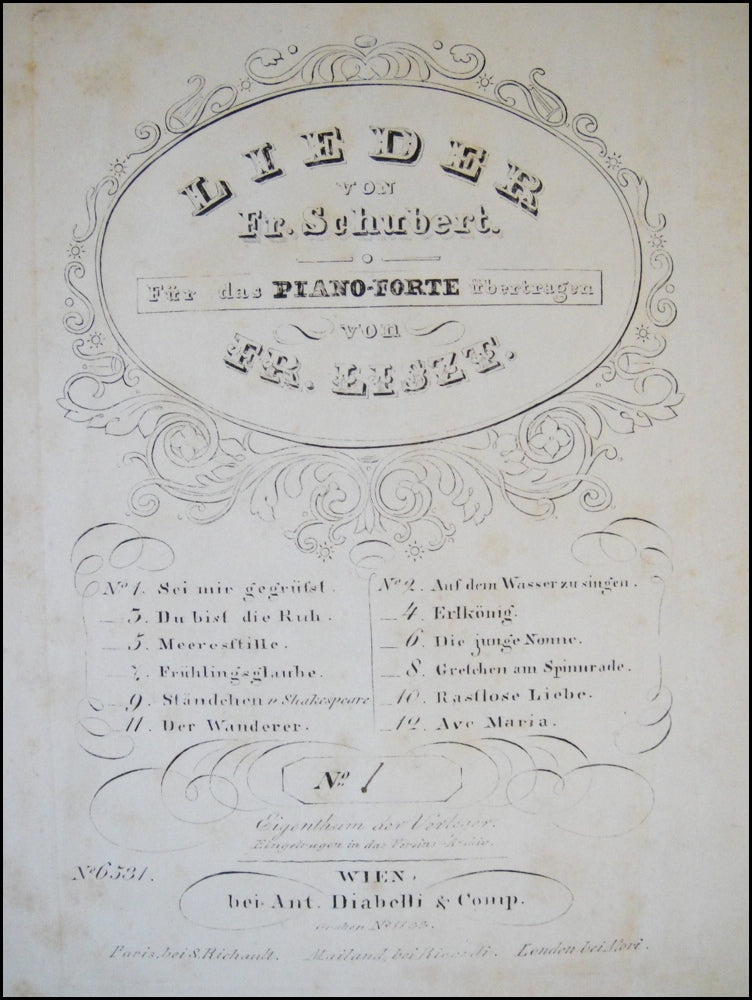 LIEDER
VON
Fr. Schubert.
Für das PIANO-FORTE übertragen
von
FR. LISZT.
No 1. Sei mir gegrüsst.
3. Du bist die Ruh.
5. Meeresstille.
7. Frühlingsglaube.
9. Ständchen v Shakespeare
11. Der Wanderer.
No 2. Auf dem Wasser zu singen.
4. Erlkönig.
6. Die junge Nonne.
8. Gretchen am Spinnrade.
10. Rastlose Liebe.
12. Ave Maria.
No 1
Eigenthum der Verleger.
Eingetragen in das Vereins-Archiv.
No 6531.
WIEN,
bei Ant. Diabelli & Comp.
Graben No
Paris, bei S. Richault. Mailand, bei Ricordi. London bei Mori.